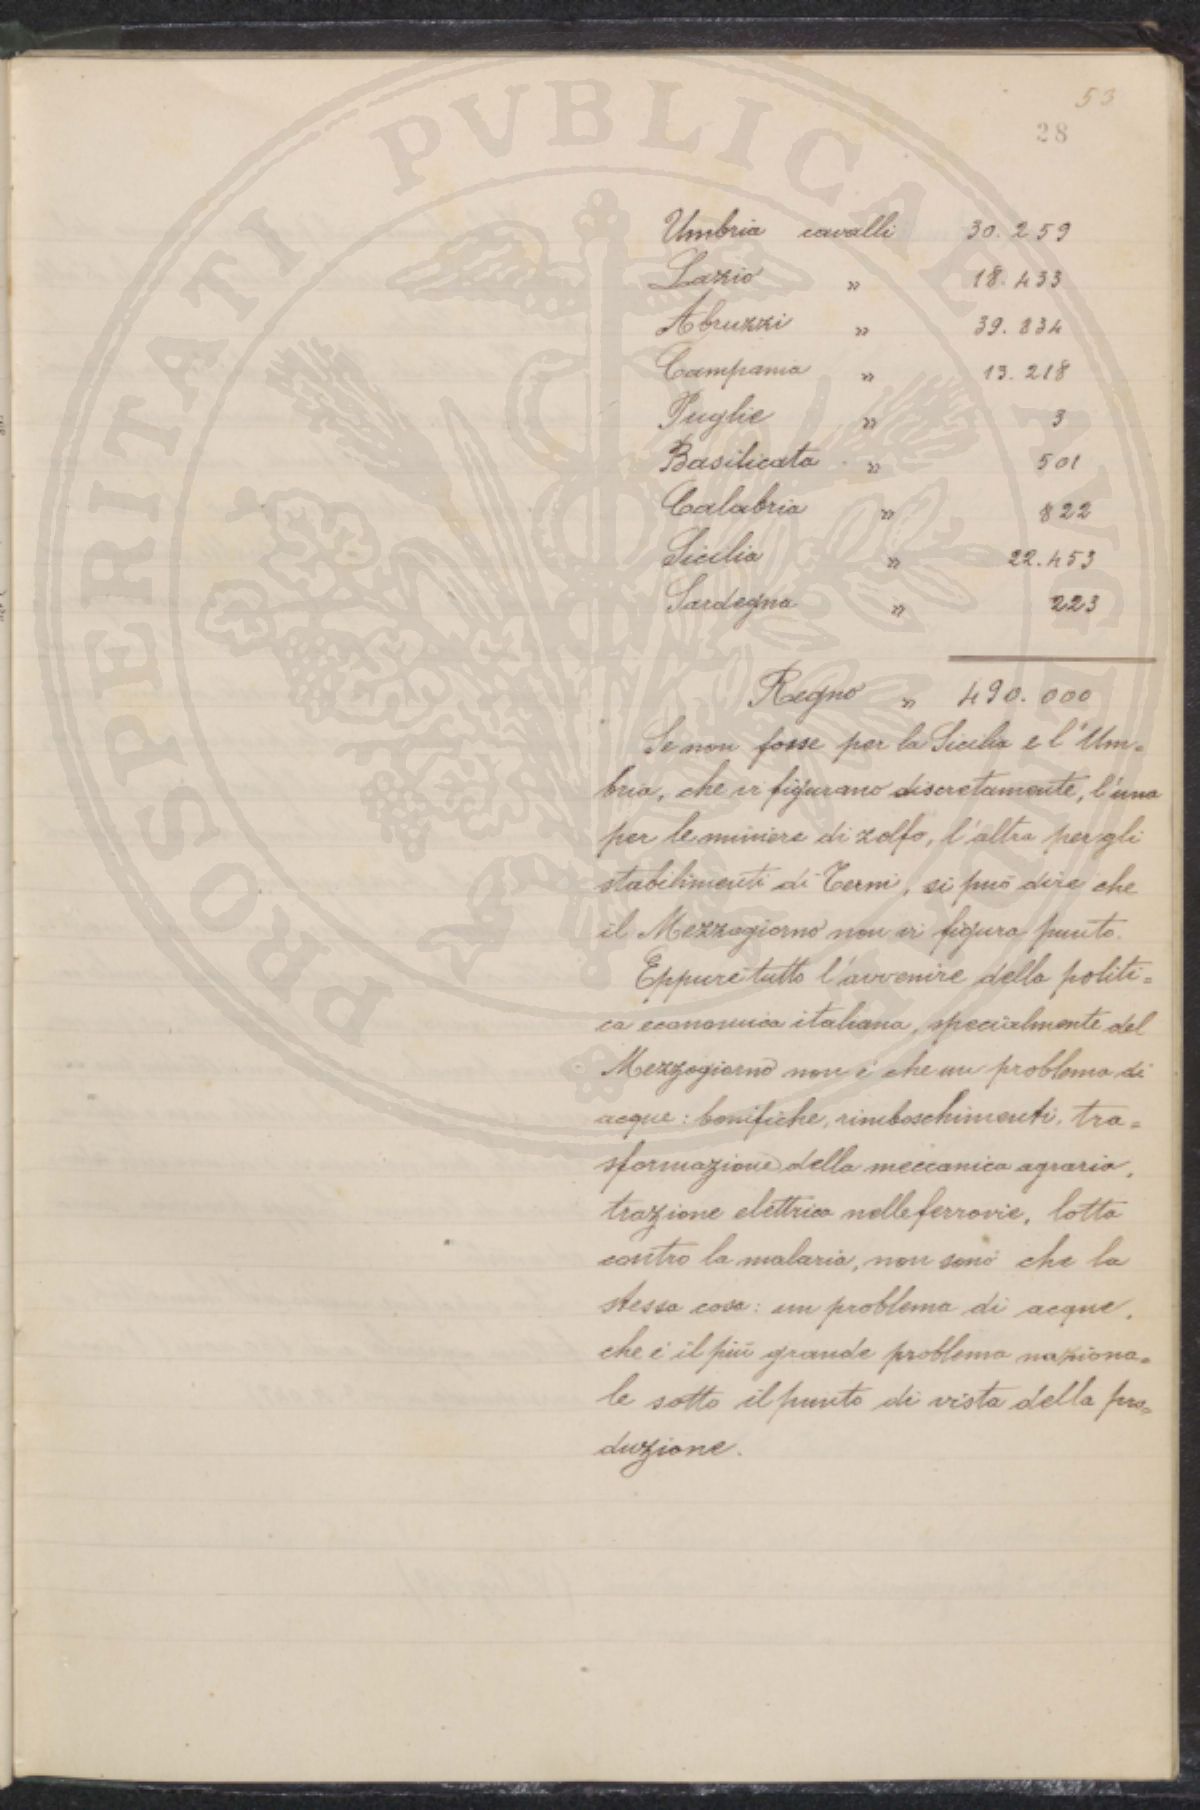 53
28
Umbria cavalli 30.259
Lazio » 18.433
Abruzzi » 39.834
Campania » 13.218
Puglie » 3
Basilicata » 501
Calabria » 822
Sicilia » 22.453
Sardegna » 223
Regno » 490.000
Se non fosse per la Sicilia e l'Um=
bria, che vi figurano discretamente, l'una
per le miniere di zolfo, l'altra per gli
stabilimenti di Terni, si può dire che
il Mezzogiorno non vi figura punto.
Eppure tutto l'avvenire della politi=
ca economica italiana, specialmente del
Mezzogiorno non è che un problema di
acque: bonifiche, rimboschimenti, tra=
sformazione della meccanica agraria,
trazione elettrica nelle ferrovie, lotta
contro la malaria, non sono che la
stessa cosa: un problema di acque,
che è il più grande problema naziona=
le sotto il punto di vista della pro=
duzione.
PROSPERITATI PVBLICAE AVGENDAE